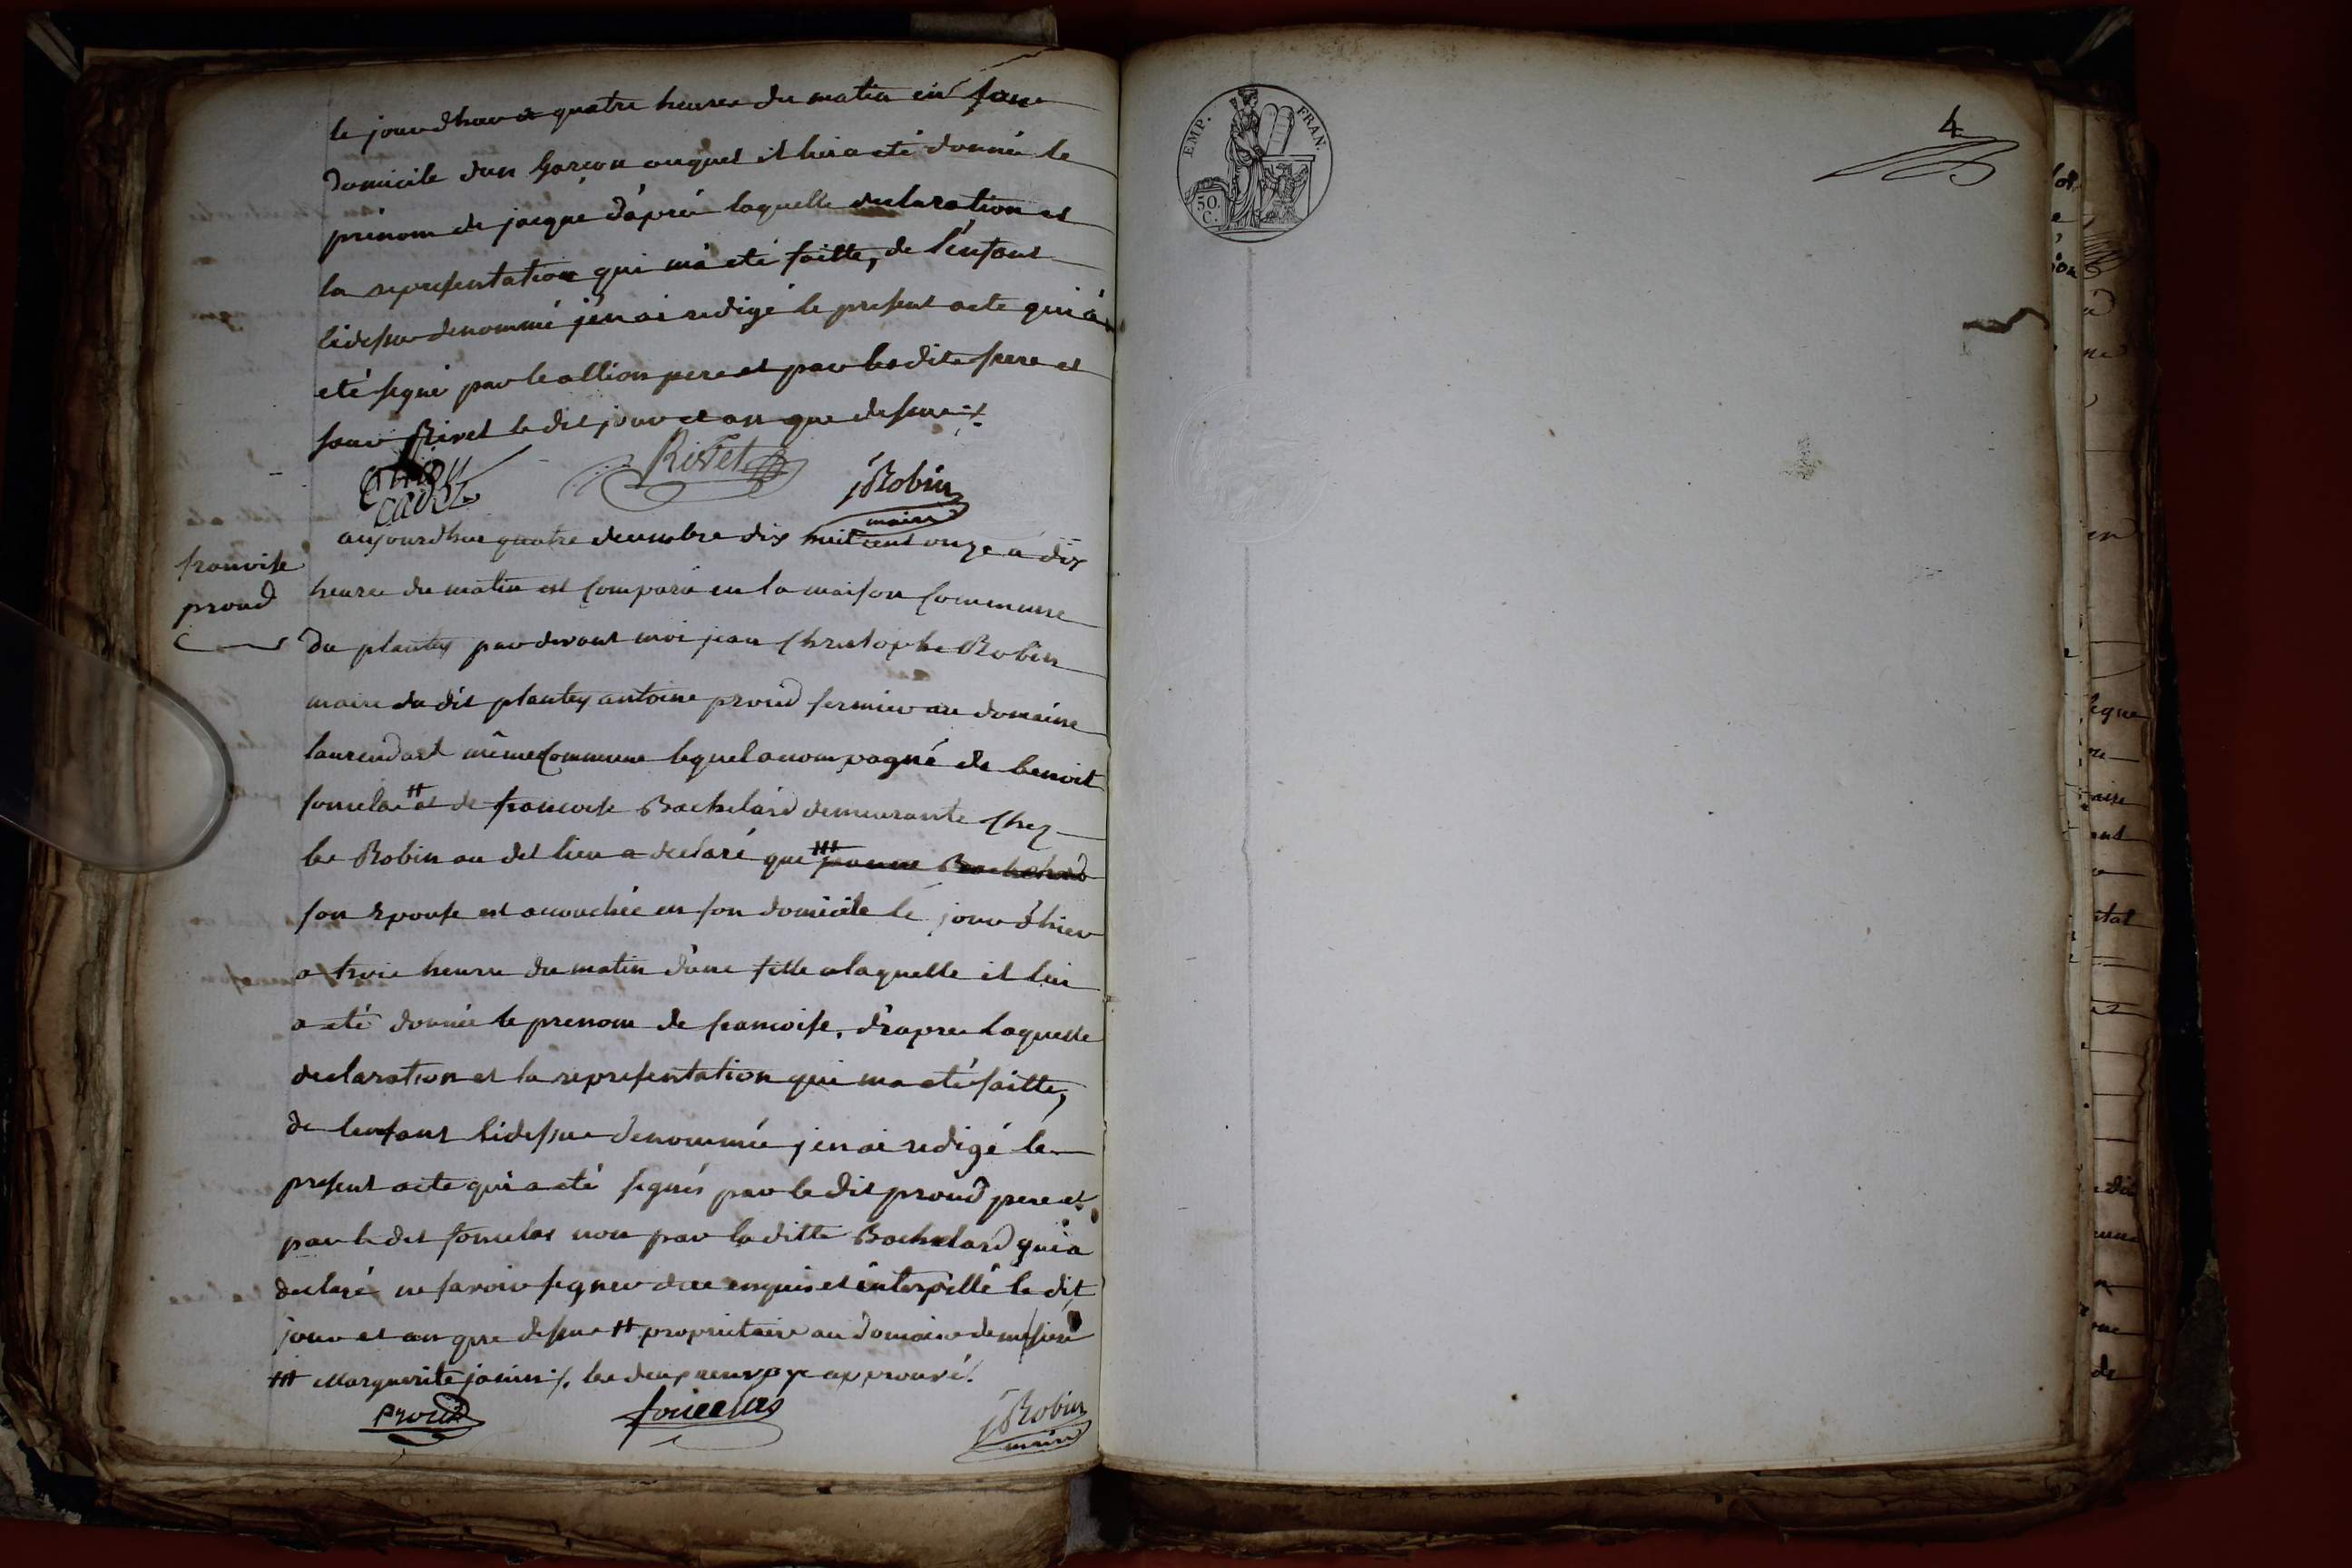 le jour dhier a quatre heures du matin en son
domicile dun garçon auquel il lui a été donnée le
prénom de jacque d'après laquelle declaration et
la representation qui m'a eté faitte, de l'enfant
cidessus denommé j'en ai redigé le present acte qui a
eté signé par le allion pere et par les dits frere et
Rivet le dit jour et an que dessus
Rivet
jRobin
maire
francoise
proud
aujourdhui quatre decembre dix huit cent onze a dix
heures du matin est comparu en la maison commune
du plantey par devant moi jean christophe Robin
maire du dit plantey antoine proud fermier au domaine
même commune lequel acompagné de benoit
# et de francoise Bachelard demeurante chez
les Robin au dit lieu a declaré que ## jeanne Bachelard
son epouse est acouchée en son domicile le jour d'hier
a trois heures du matin d'une fille a laquelle il lui
a eté donnée le prenom de francoise, d'apres laquelle
declaration et la representation qui ma eté faitte,
de lenfant cidessus denommée j'en ai redigé le
present acte qui a eté signés par le dit proud pere et
par le dit non par la ditte Bachelard qui a
declaré ne savoir signer de ce enquis et interpellé le dit
jour et an que dessus # proprietaire au domaine de
## Marguerite janin /. les deux renvoye approuvé.
proud
jRobin
maire
EMP. FRAN.
50.
C.
4